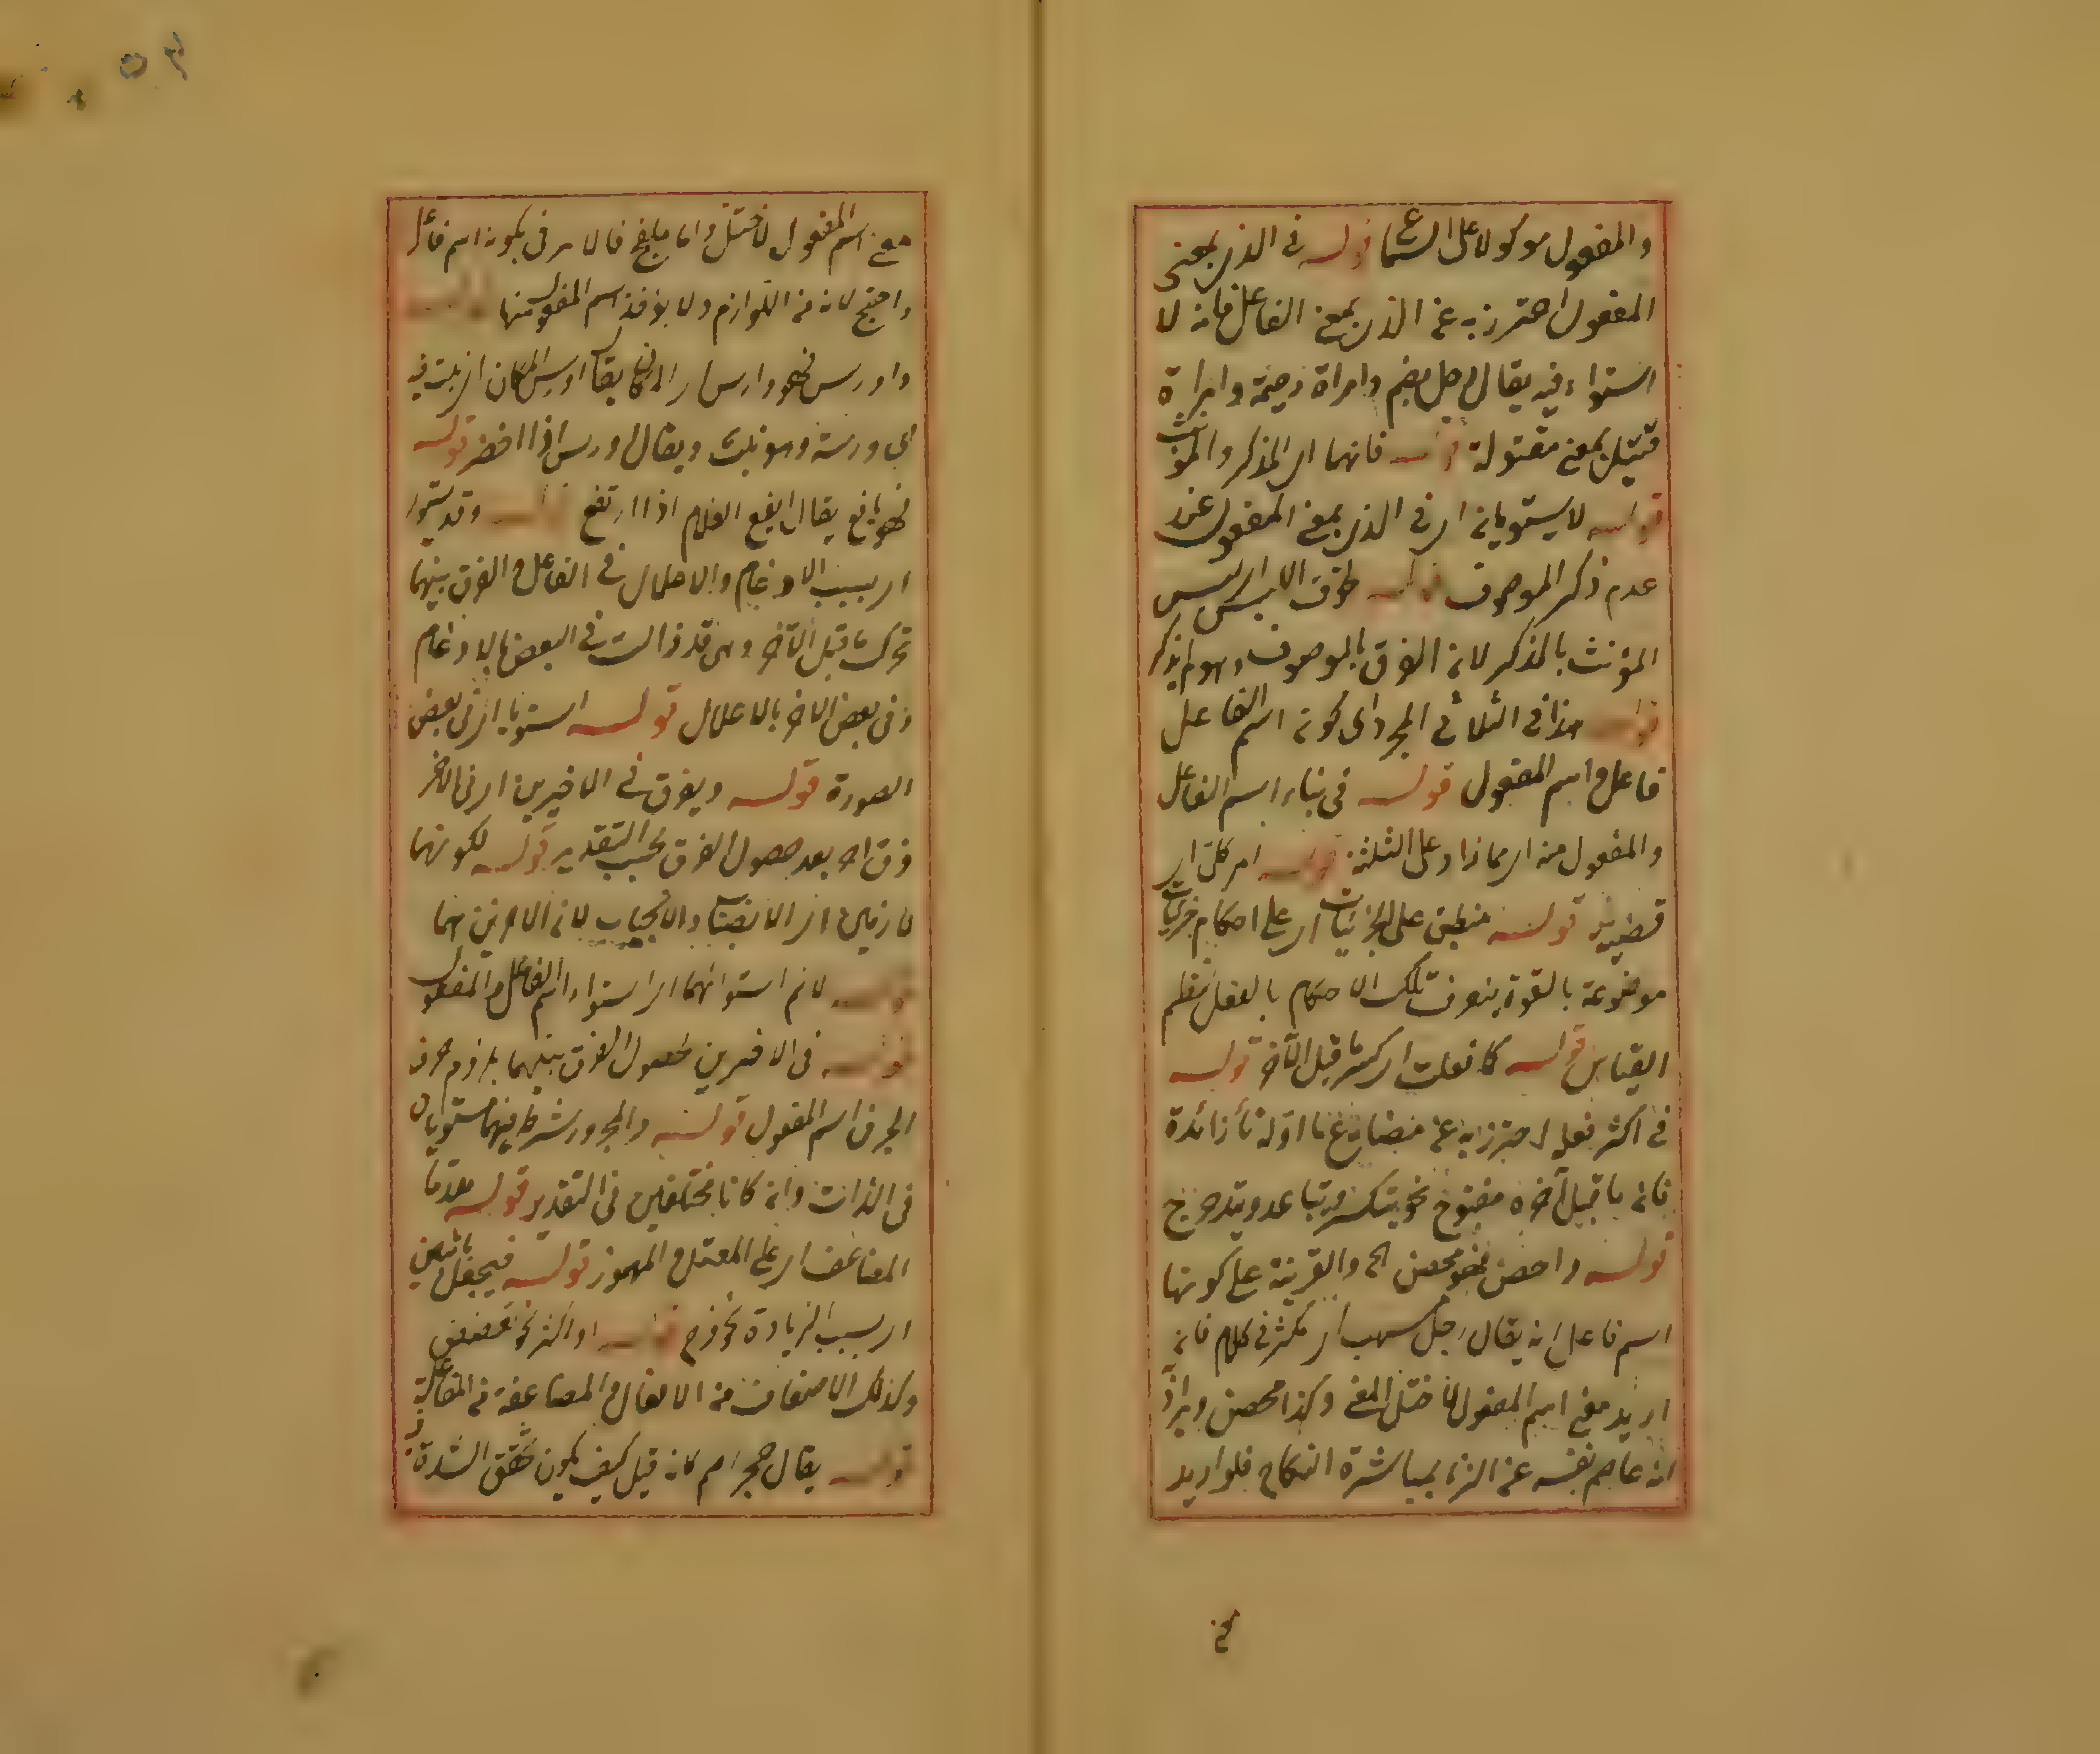 والمفعول موكولا على السماع قوله في الذي بمعنى
المفعول احترز به عن الذي بمعنى الفاعل فانه لا
استواء فيه يقال رجل رحيم وامراة رحيمة وامراة
قتيل بمعنى مقتولة قوله فانهما اي المذكر والمؤنث
قوله لا يستويان اي في الذي بمعنى المفعول عند
عدم ذكر الموصوف قوله خوف اللبس اي لبس
المؤنث بالمذكر لان الفرق بالموصوف وهو لم يذكر
قوله هذا في الثلاثي المجرد اي كون اسم الفاعل
فاعل واسم المفعول قوله في بناء اسم الفاعل
والمفعول منه اي مما زاد على الثلثة قوله امر كلي اي
قضية قوله منطبق على الجزئيات اي على احكام جزئيات
موضوعة بالقوة يتعرف تلك الاحكام بالفعل بنظم
القياس قوله كما فعلت اي كسر ما قبل الآخر قوله
في اكثر فعله احترز به عن مضارع ما اوله تاء زائدة
فان ما قبل آخره مفتوح نحو يتكسر ويتباعد ويتدحرج
قوله واحصن فهو محصن الخ والقرينة على كونها
اسم فاعل انه يقال رجل مسهب اي مكثر في كلام فان
اريد معنى اسم المفعول لاختل المعنى وكذا محصن ويراد
انه عاصم نفسه عن الزنا بمباشرة النكاح فلو اريد
مع
معنى اسم المفعول لاختل واما ملفج فالامر في كونه اسم فاعل
واضح لانه من اللوازم ولا يؤخذ اسم المفعول منها قوله
واورس فهو وارس اي المكان يقال اورس المكان اي نبت فيه
اي ورسة وهو نبت ويقال اورس اذا اخضر قوله
فهو يافع يقال ايفع الغلام اذا ارتفع قوله وقد يستوي
اي بسبب الادغام والاعلال في الفاعل والفرق بينهما
تحرك ما قبل الآخر وهي قد زالت في البعض بالادغام
وفي بعض الاخر بالاعلال قوله استويا اي في بعض
الصورة قوله ويفرق في الاخيرين اي في الآخر
فرق اخر بعد حصول الفرق بحسب التقدير قوله لكونهما
لازمين اي الانصباب والانجياب لان الامرين هما
قوله لان استوائهما اي استواء اسم الفاعل والمفعول
قوله في الاخيرين لحصول الفرق بينهما بلزوم حرف
الجر في اسم المفعول قوله والمجرور شرط فيهما مستويان
في الذات وان كانا مختلفين في التقدير قوله مقدما
المضاعف اي على المعتل والمهموز قوله فيجعل باثنين
اي بسبب الزيادة نحو فرح قوله او اكثر نحو
وكذلك الاضعاف من الافعال والمضاعفة من المفاعلة
قوله يقال حجر اصم فان قيل كيف يكون تحقق الشدة